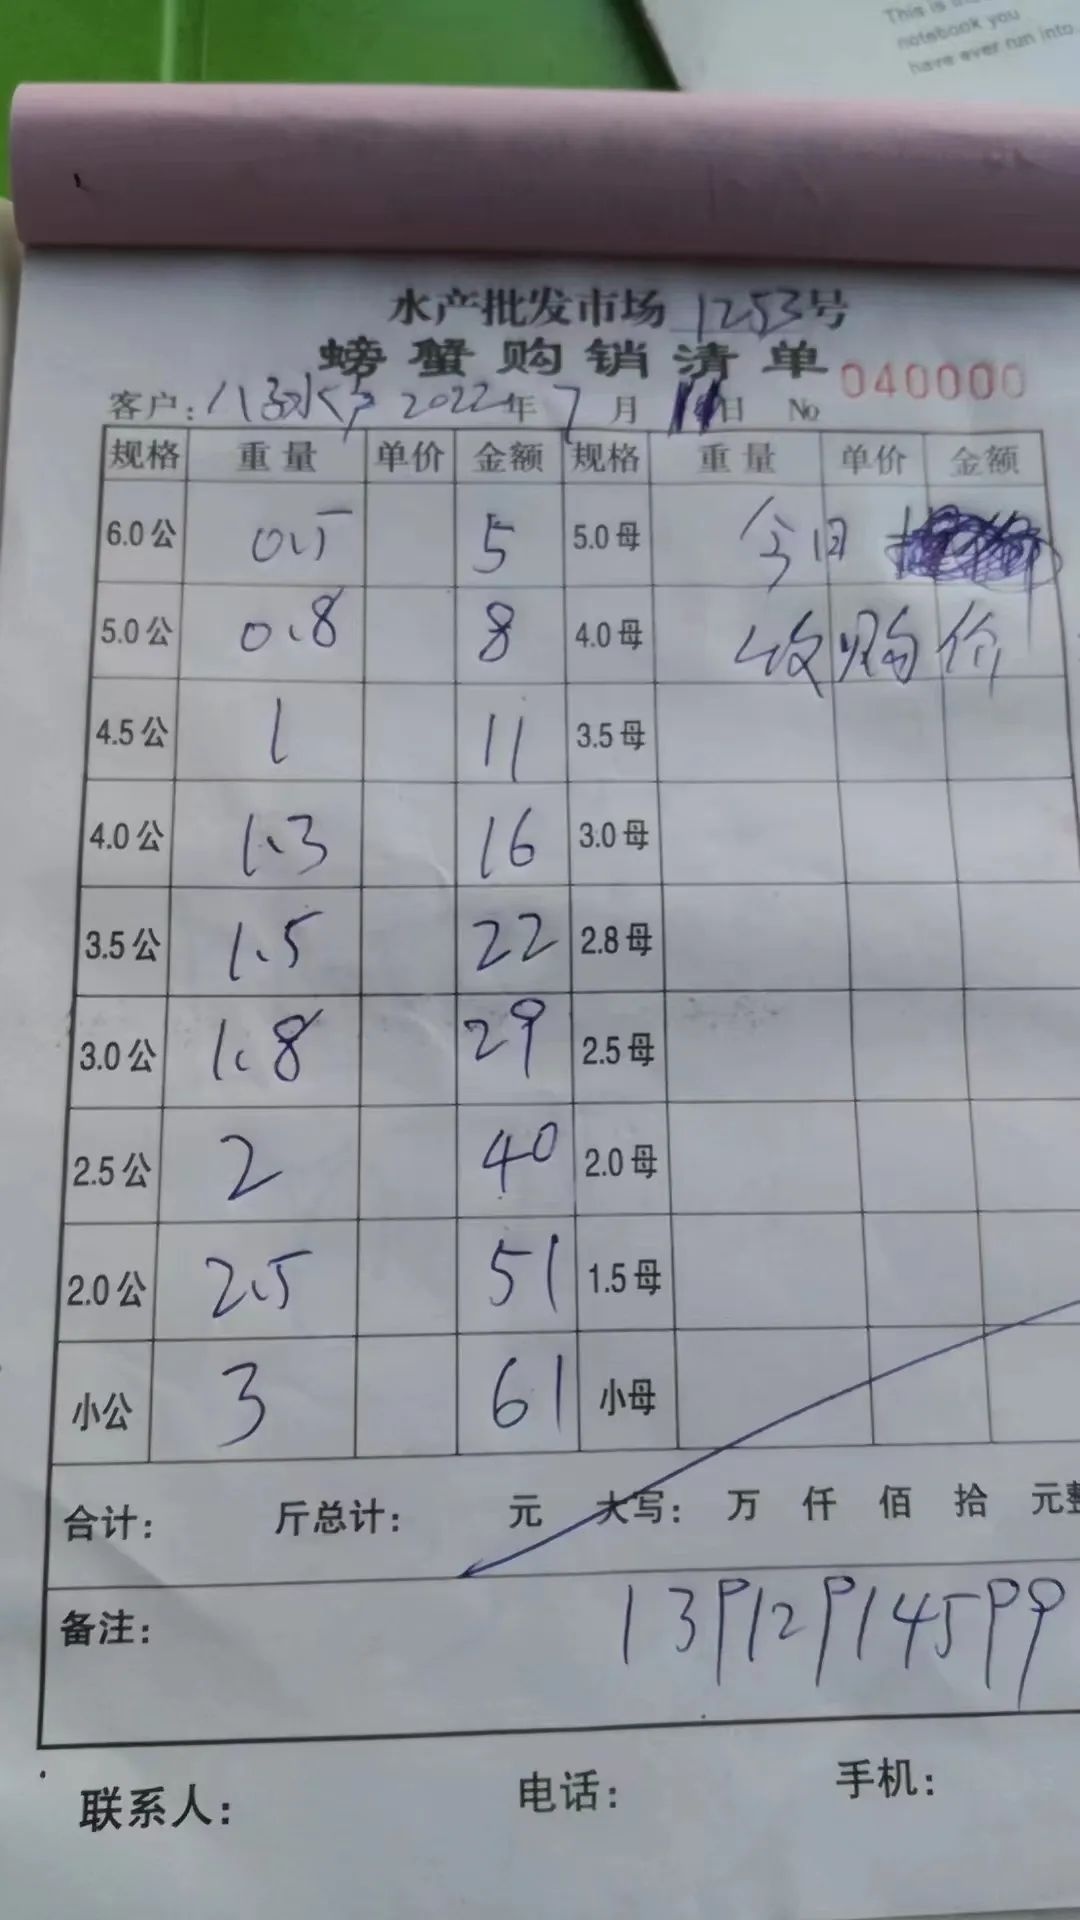 This is the
notebook you
have ever run into.
水产批发市场 1253号
螃蟹购销清单 040000
客户: 2022年 7月 11日 No
规格 重量 单价 金额 规格 重量 单价 金额
6.0公 0.5 5 5.0母 今日
5.0公 0.8 8 4.0母 收购价
4.5公 1 11 3.5母
4.0公 1.3 16 3.0母
3.5公 1.5 22 2.8母
3.0公 1.8 29 2.5母
2.5公 2 40 2.0母
2.0公 2.5 51 1.5母
小公 3 61 小母
合计: 斤总计: 元 大写: 万 仟 佰 拾 元整
备注: 13912914599
联系人: 电话: 手机: